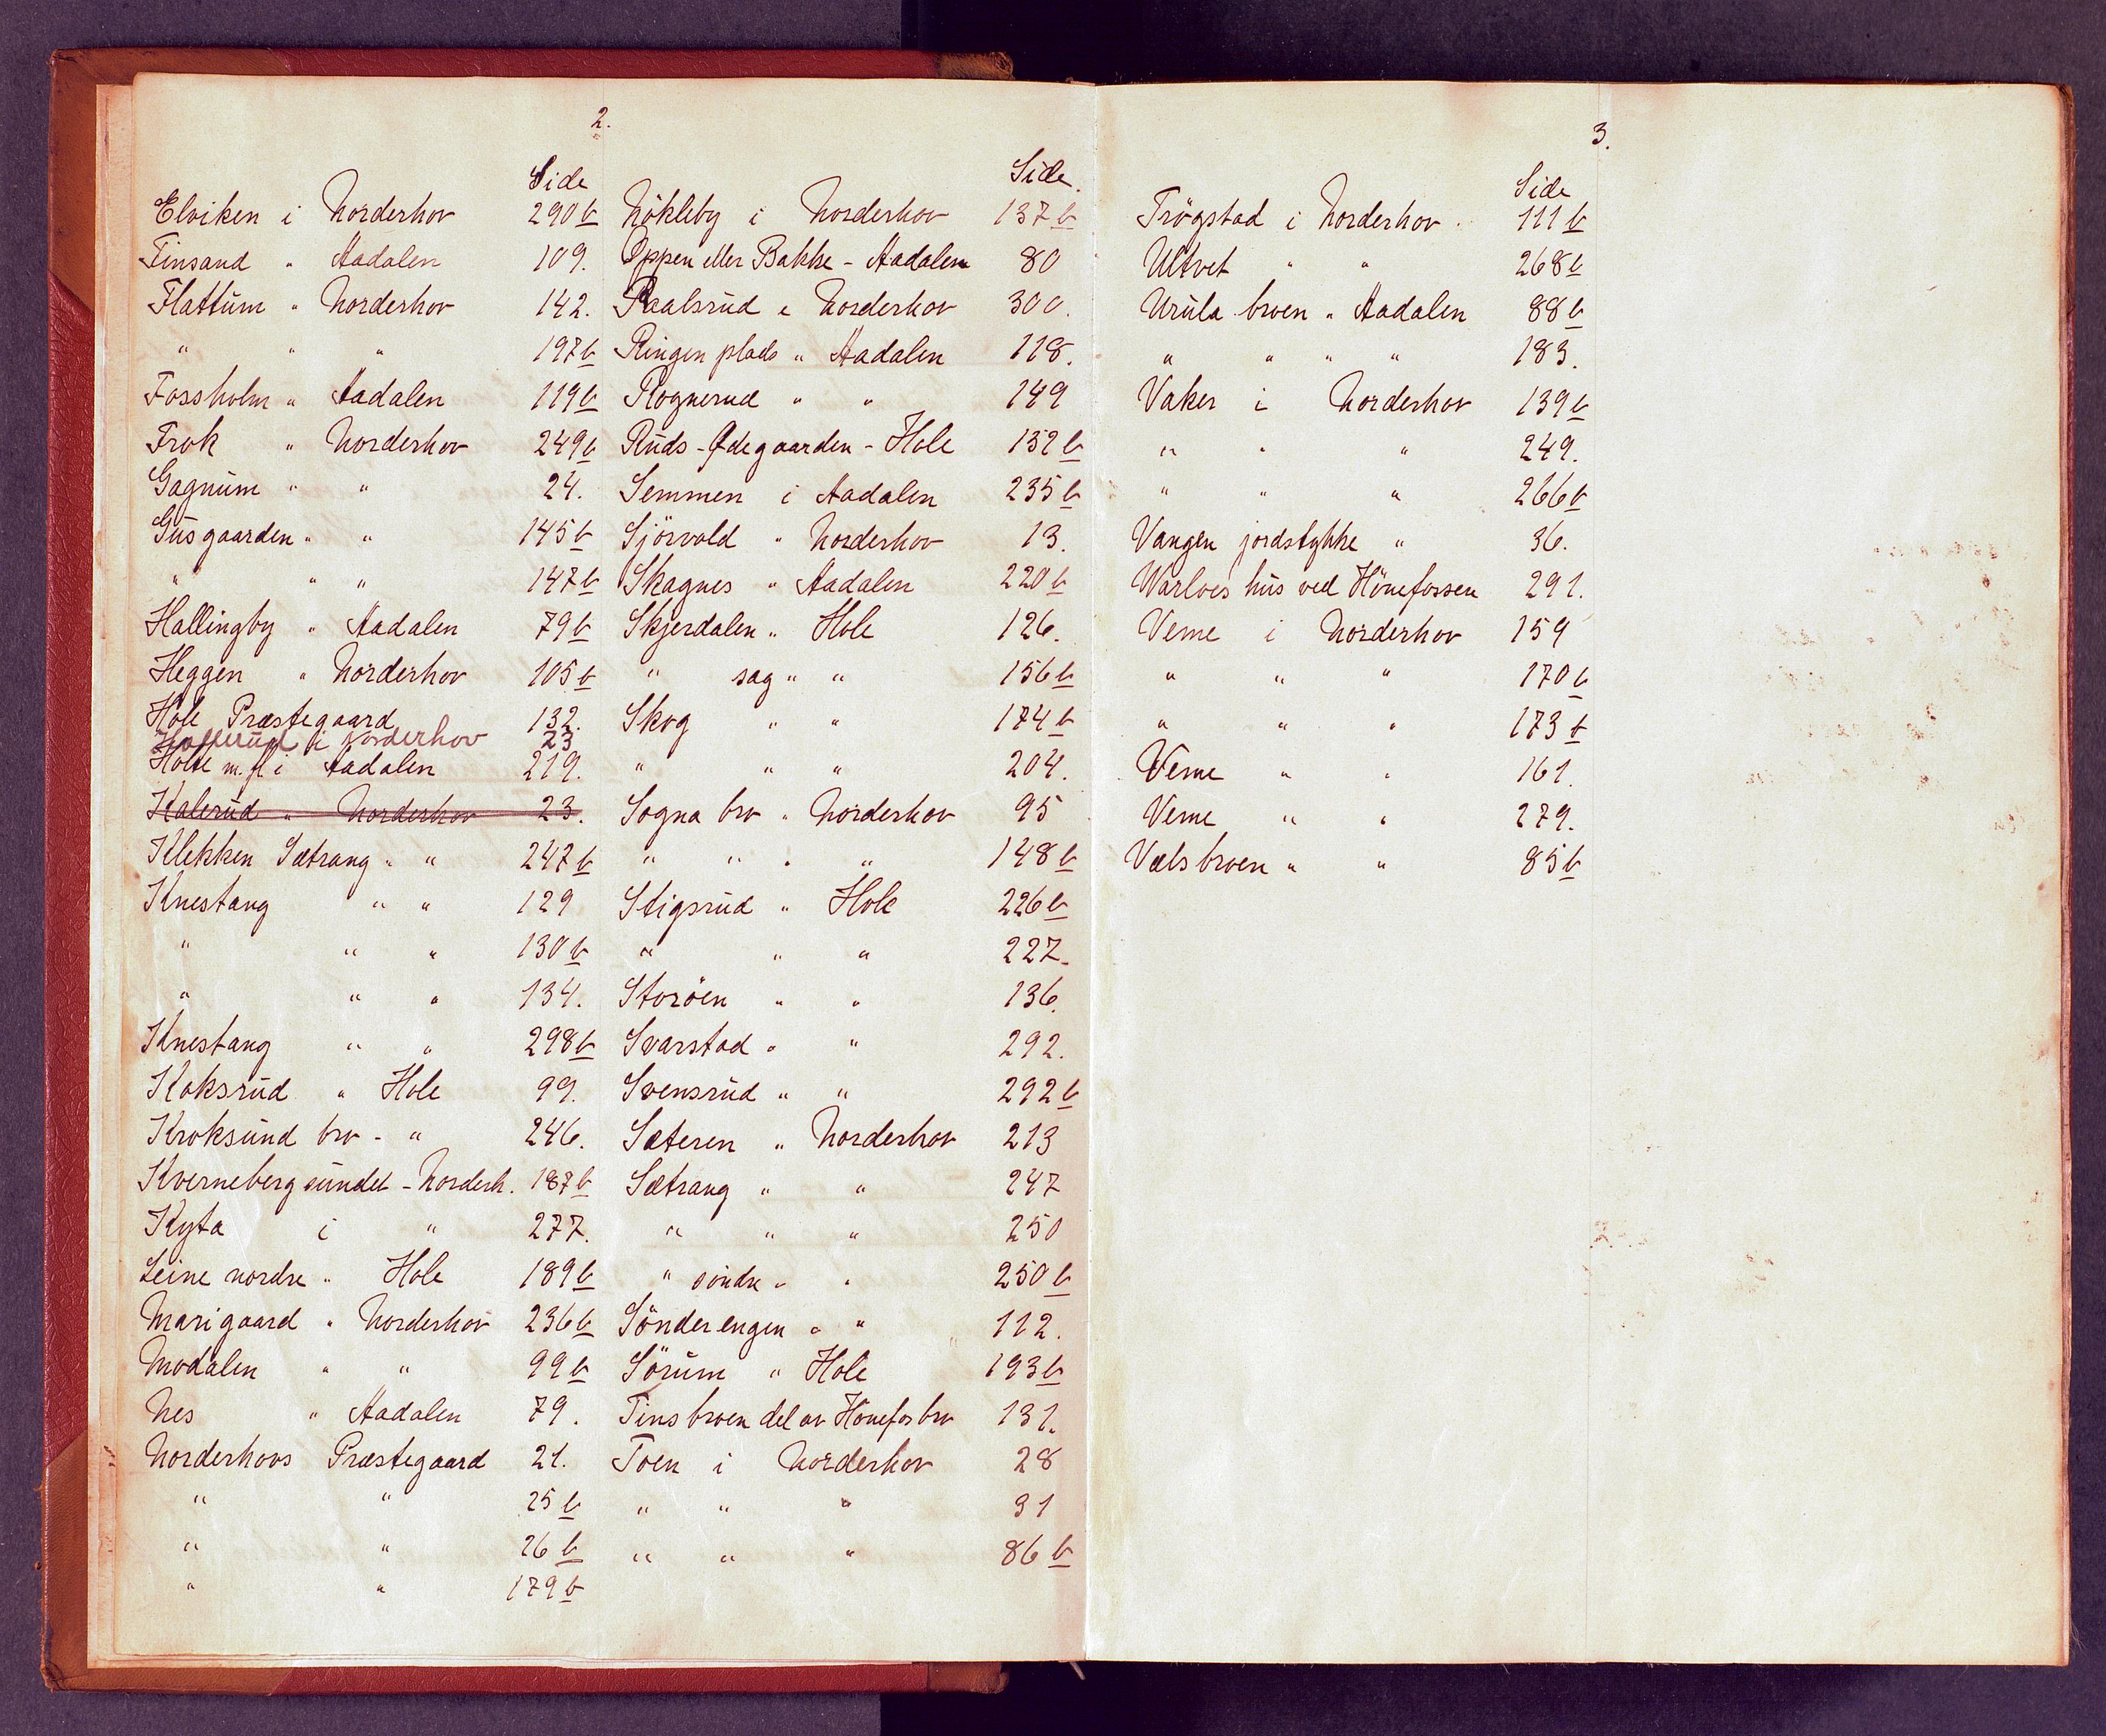 2.
Side
Elviken i Norderhov 290 b
Finsand " Aadalen 109.
Flattum " Norderhov 142.
" " " 197 b
Fossholm " Aadalen 119 b
Frok " Norderhov 249 b
Gagnum " " 24.
Gusgaarden " " 145 b
" " " 147 b
Hallingby " Aadalen 79 b
Heggen " Norderhov 105 b
Hole Præstegaard 132.
i Norderhov 23
Holte m. fl i Aadalen 219.
Kalerud " Norderhov 23.
Klekken Sætrang " " 247 b
Knestang " " 129
" " " 130 b
" " " 134.
Knestang " " 298 b
Koksrud " Hole 99.
Kroksund bro - " 246.
Kvernebergsundet - Norderh. 187 b
Kyta i " 277.
Leine nordre " Hole 189 b
Marigaard " Norderhov 236 b
Modalen " " 99 b
Nes " Aadalen 79.
Norderhovs Præstegaard 21.
" " 25 b
" " 26 b
" " 179 b
Side.
Nökleby i Norderhov 137 b
Oppen eller Bakke - Aadalen 80
Paalsrud i Norderhov 300.
Ringen plads " Aadalen 118.
Rognerud " " 149
Ruds-Ødegaarden - Hole 152 b
Semmen i Aadalen 235 b
Sjörvold " Norderhov 13.
Skagnes " Aadalen 220 b
Skjerdalen " Hole 126.
" sag " " 156 b
Skog " " 174 b
" " " 204.
Sogna bro " Norderhov 95
" " " " 148 b
Stigsrud " Hole 226 b
" " " 227.
Storöen " " 136.
Svarstad " " 292.
Svensrud " " 292 b
Sæteren " Norderhov 213
Sætrang " " 247
" " " 250
" söndre " " 250 b
Sönderengen " " 112.
Sörum " Hole 193 b
Tinsbroen del av Hönefosbro 131.
Toen i Norderhov 28
" " " 31
" " " 86 b
3.
Side
Trögstad i Norderhov. 111 b
Ultvet " " 268 b
Urula broen " Aadalen 88 b
" " " " 183.
Vaker i Norderhov 139 b
" " " 249.
" " " 266 b
Vangen jordstykke " 36.
Warloes hus ved Hönefossen 291.
Veme i Norderhov 159
" " " 170 b
" " " 173 b
Veme " " 161.
Veme " " 279.
Vælsbroen " " 85 b